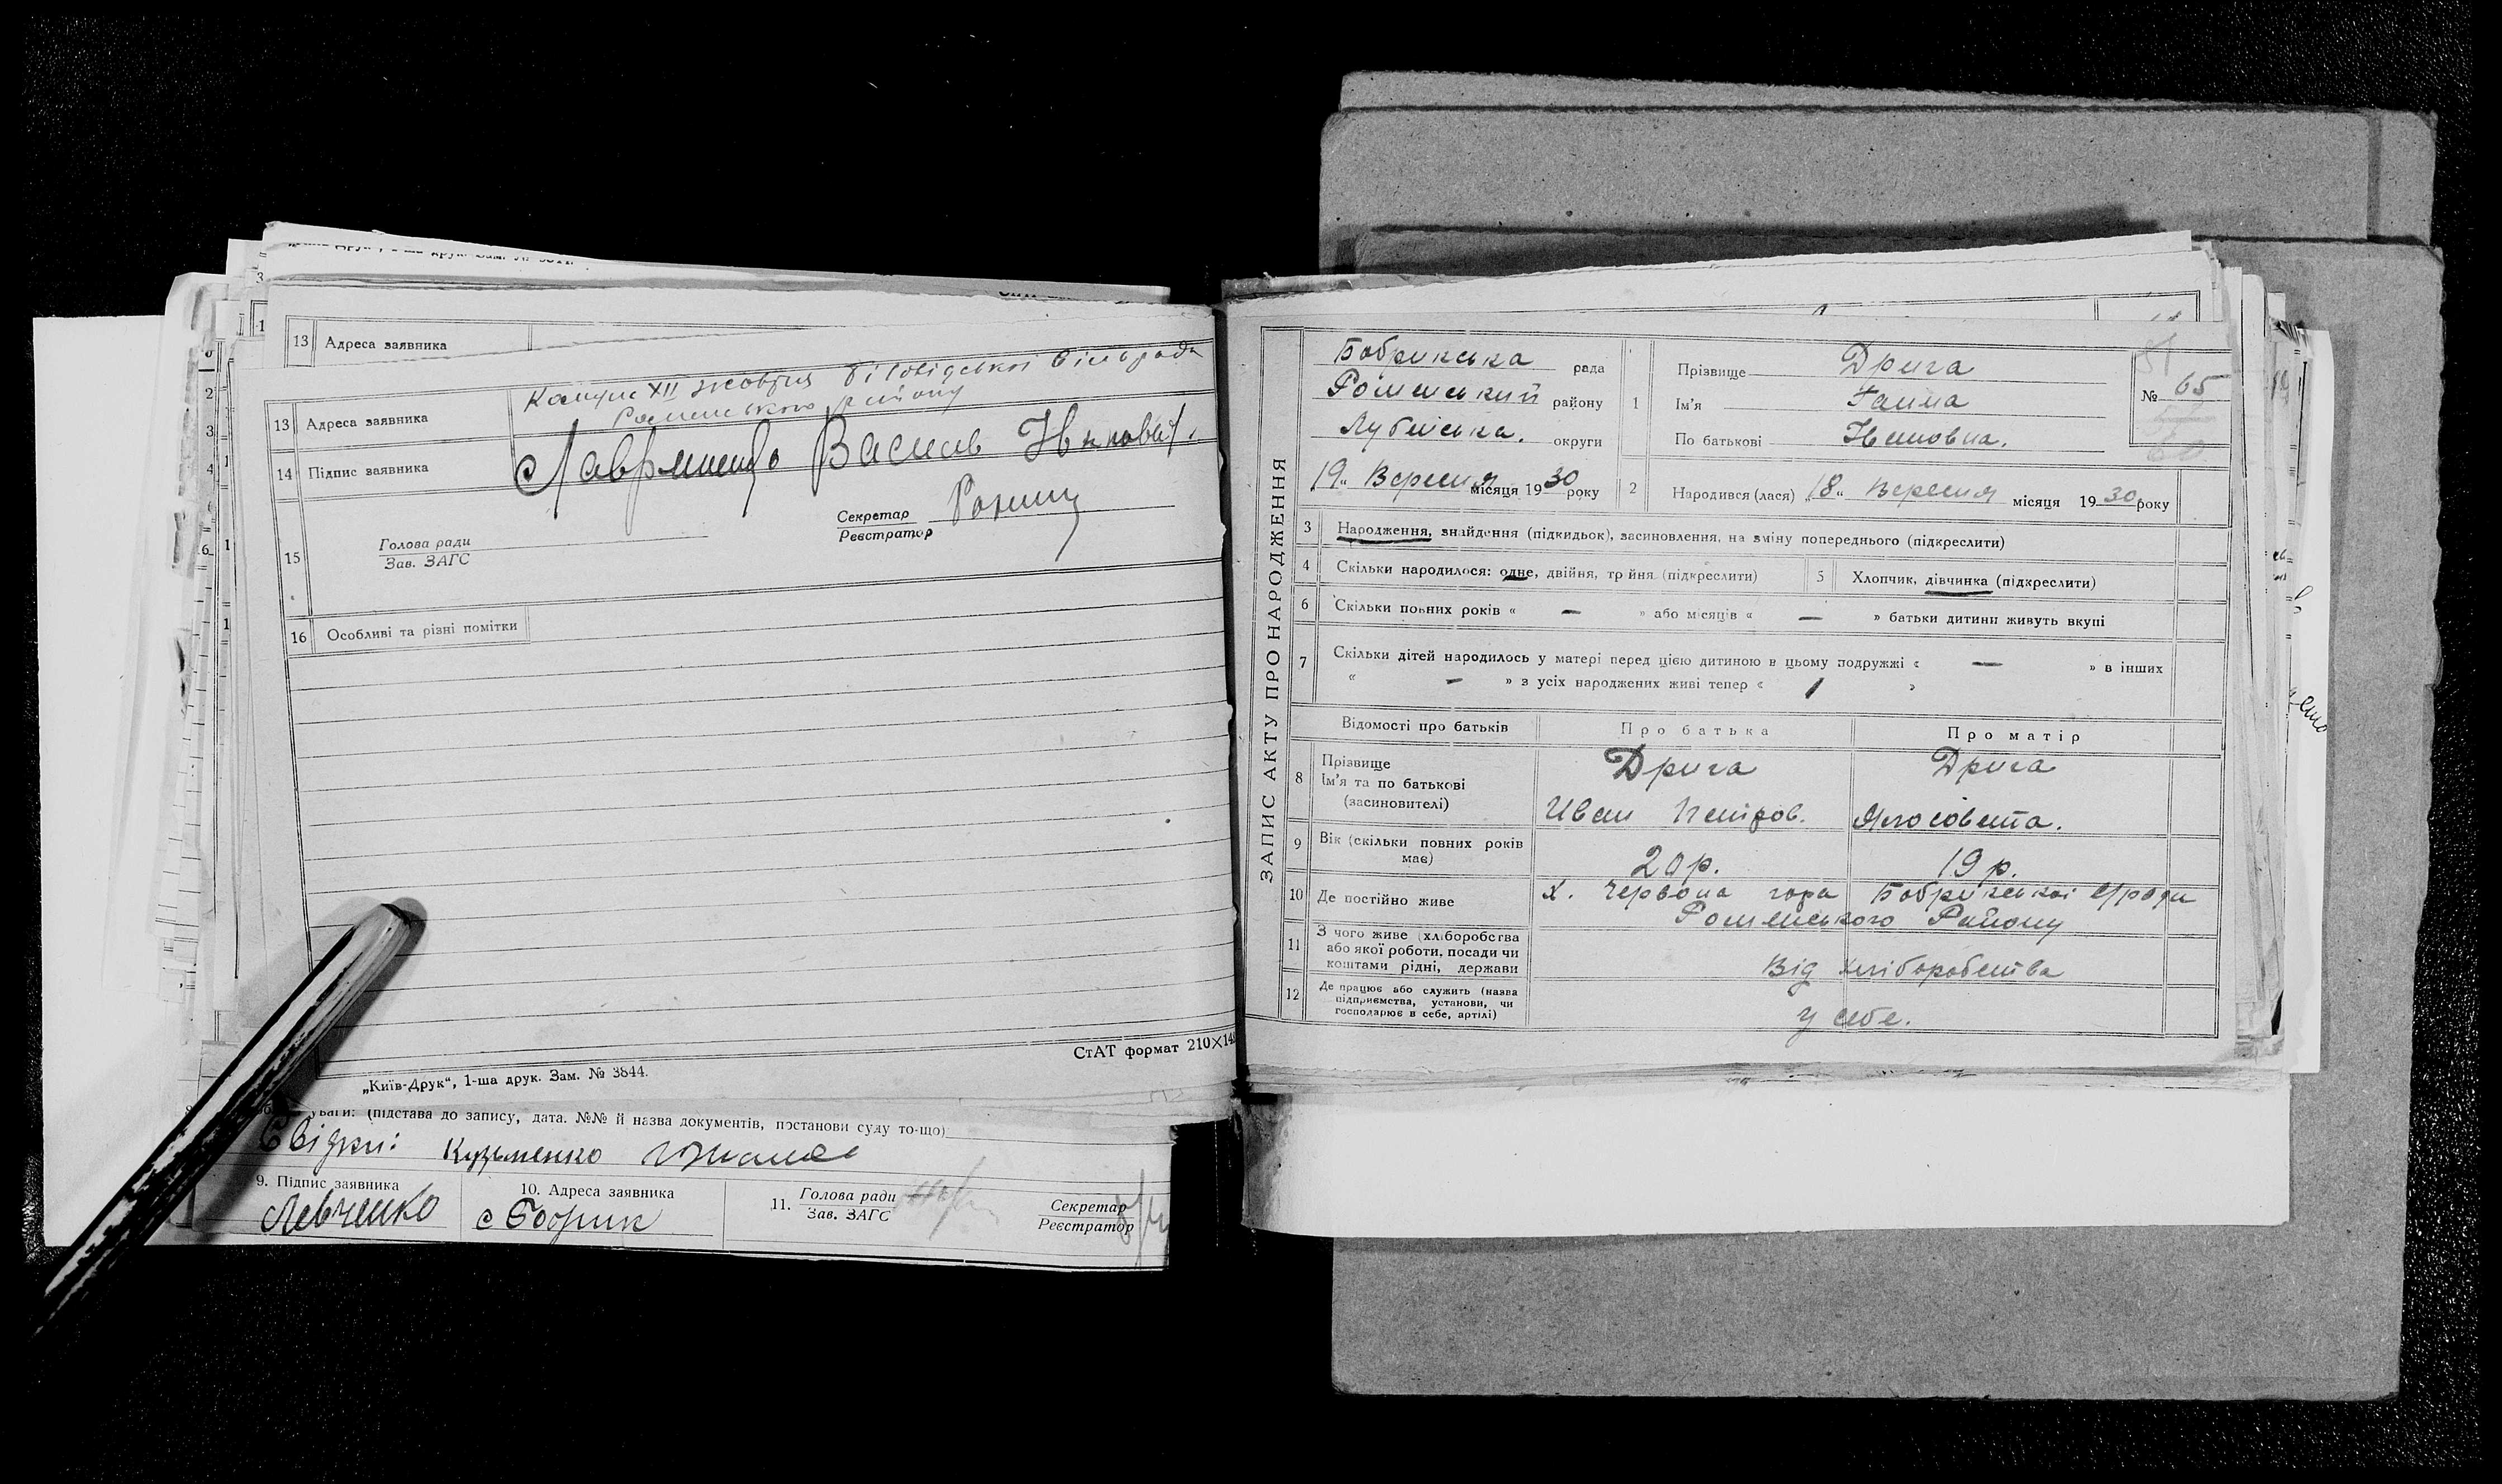 13 Адреса заявника
13 Адреса заявника Комуна XII жовтня Біловідської сільради
Роменського району
14 Підпис заявника Лавриненко Василь
15 Голова ради
Зав. ЗАГС
Секретар
Реєстратор
16 Особливі та різні помітки
СтАТ формат 210×14
„Київ-Друк“, 1-ша друк. Зам. № 3844.
уваги: (підстава до запису, дата. №№ й назва документів, постанови суду то-що)
Свідки: Кузьменко
9. Підпис заявника
Левченко
10. Адреса заявника
с Бобрик
11. Голова ради
Зав. ЗАГС
Секретар
Реєстратор
ЗАПИС АКТУ ПРО НАРОДЖЕННЯ
Бобрикська рада
Роменський району
Лубенська. округи
„19“ Вересня місяця 1930 року
1 Прізвище Дрига
Ім'я Ганна
По батькові Івановна.
№ 65
2 Народився (лася) „18“ Вересня місяця 1930 року
3 Народження, знайдення (підкидьок), засиновлення, на зміну попереднього (підкреслити)
4 Скільки народилося: одне, двійня, трійня (підкреслити) 5 Хлопчик, дівчинка (підкреслити)
6 Скільки повних років « — » або місяців « — » батьки дитини живуть вкупі
7 Скільки дітей народилось у матері перед цією дитиною в цьому подружжі « — » в інших
« — » з усіх народжених живі тепер « 1 »
Відомості про батьків Про батька Про матір
8 Прізвище Дрига Дрига
Ім'я та по батькові
(засиновителі) Иван Петров.
9 Вік (скільки повних років
має) 20 р. 19 р.
10 Де постійно живе х. Червона гора Бобрикської с/ради
Роменського Району
11 З чого живе (хліборобства
або якої роботи, посади чи
коштами рідні, держави Від хліборобства
12 Де працює або служить (назва
підприємства, установи, чи
господарює в себе, артілі) у себе.